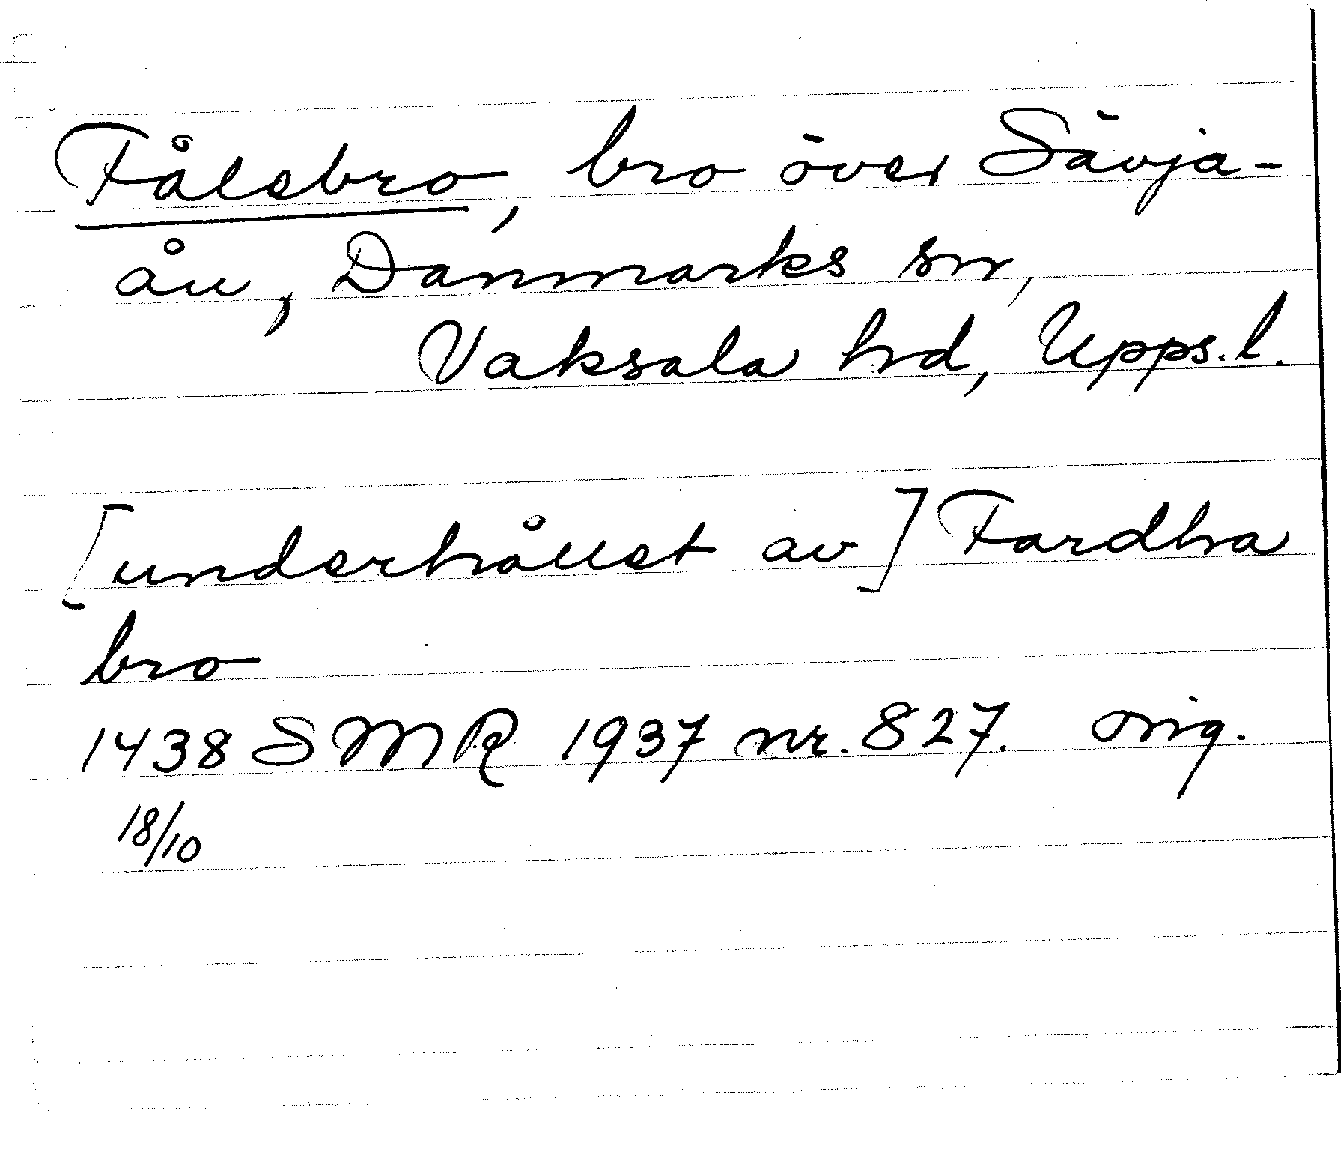 Fålebro, bro över Sävja-
ån, Danmarks sn,
Vaksala hd, Upps.l.
[underhållet av] Fardha
bro
1438 SMR 1937 nr. 827. orig.
18/10